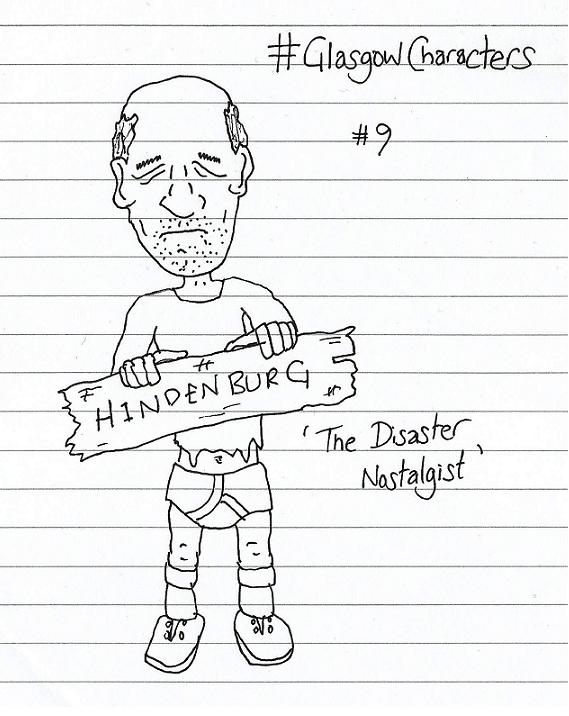 #GlasgowCharacters
#9
HINDENBURG
'The Disaster
Nostalgist'